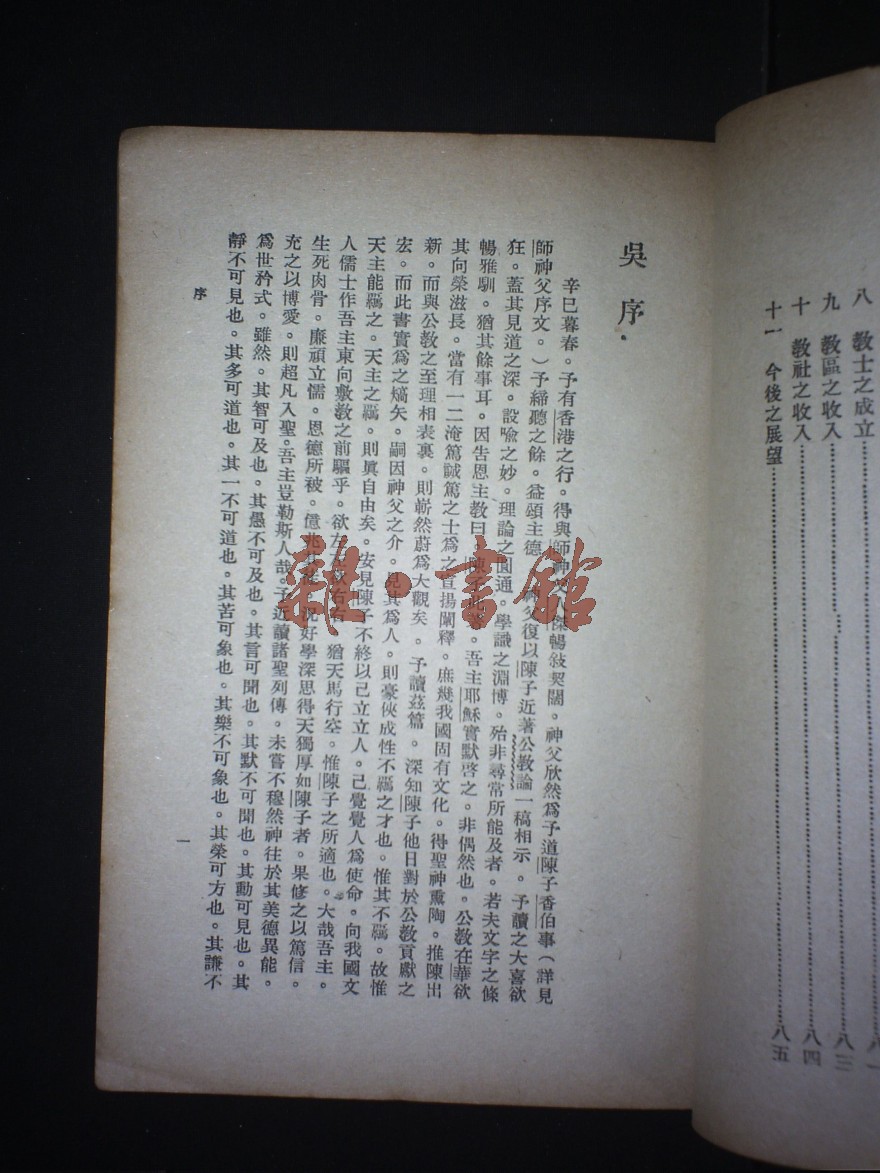 八　教士之成立……八一
九　教區之收入……八三
十　教社之收入……八四
十一　今後之展望……八五
吳序
辛巳暮春。予有香港之行。得與師神父傑暢敍契闊。神父欣然爲予道陳子香伯事（詳見
師神父序文。）予締聽之餘。益頌主德。神父復以陳子近著公教論一稿相示。予讀之大喜欲
狂。蓋其見道之深。設喩之妙。理論之圓通。學識之淵博。殆非尋常所能及者。若夫文字之條
暢雅馴。猶其餘事耳。因告恩主教曰。陳子此著。吾主耶穌實默啓之。非偶然也。公教在華欲
其向榮滋長。當有一二淹篤誠篤之士爲之宣揚闡釋。庶幾我國固有文化。得聖神薰陶。推陳出
新。而與公教之至理相表裏。則嶄然蔚爲大觀矣。予讀茲篇。深知陳子他日對於公教貢獻之
宏。而此書實爲之嚆矢。嗣因神父之介。見其爲人。則豪俠成性不羈之才也。惟其不羈。故惟
天主能羈之。天主之羈。則眞自由矣。安見陳子不終以己立立人。己覺覺人爲使命。向我國文
人儒士作吾主東向敷教之前驅乎。欲左左欲右右。猶天馬行空。惟陳子之所適也。大哉吾主。
生死肉骨。廉頑立懦。恩德所被。億兆。況好學深思得天獨厚如陳子者。果修之以篤信。
充之以博愛。則超凡入聖。吾主豈勒斯人哉。予近讀諸聖列傳。未嘗不穆然神往於其美德異能。
爲世矜式。雖然。其智可及也。其愚不可及也。其言可聞也。其默不可聞也。其動可見也。其
靜不可見也。其多可道也。其一不可道也。其苦可象也。其樂不可象也。其榮可方也。其謙不
序
一
雜·書館